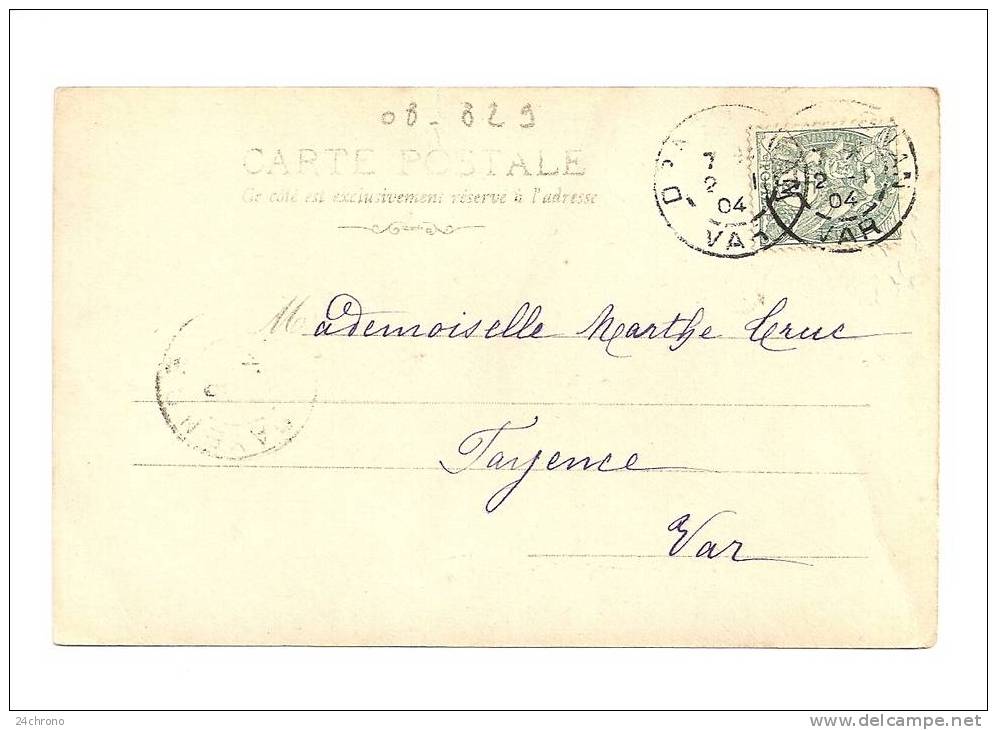 08-829
CARTE POSTALE
Ce côté est exclusivement réservé à l'adresse
7
2
04
VAR
2
04
VAR
Mademoiselle Marthe Cruc
Fayence
Var
24chrono
www.delcampe.net